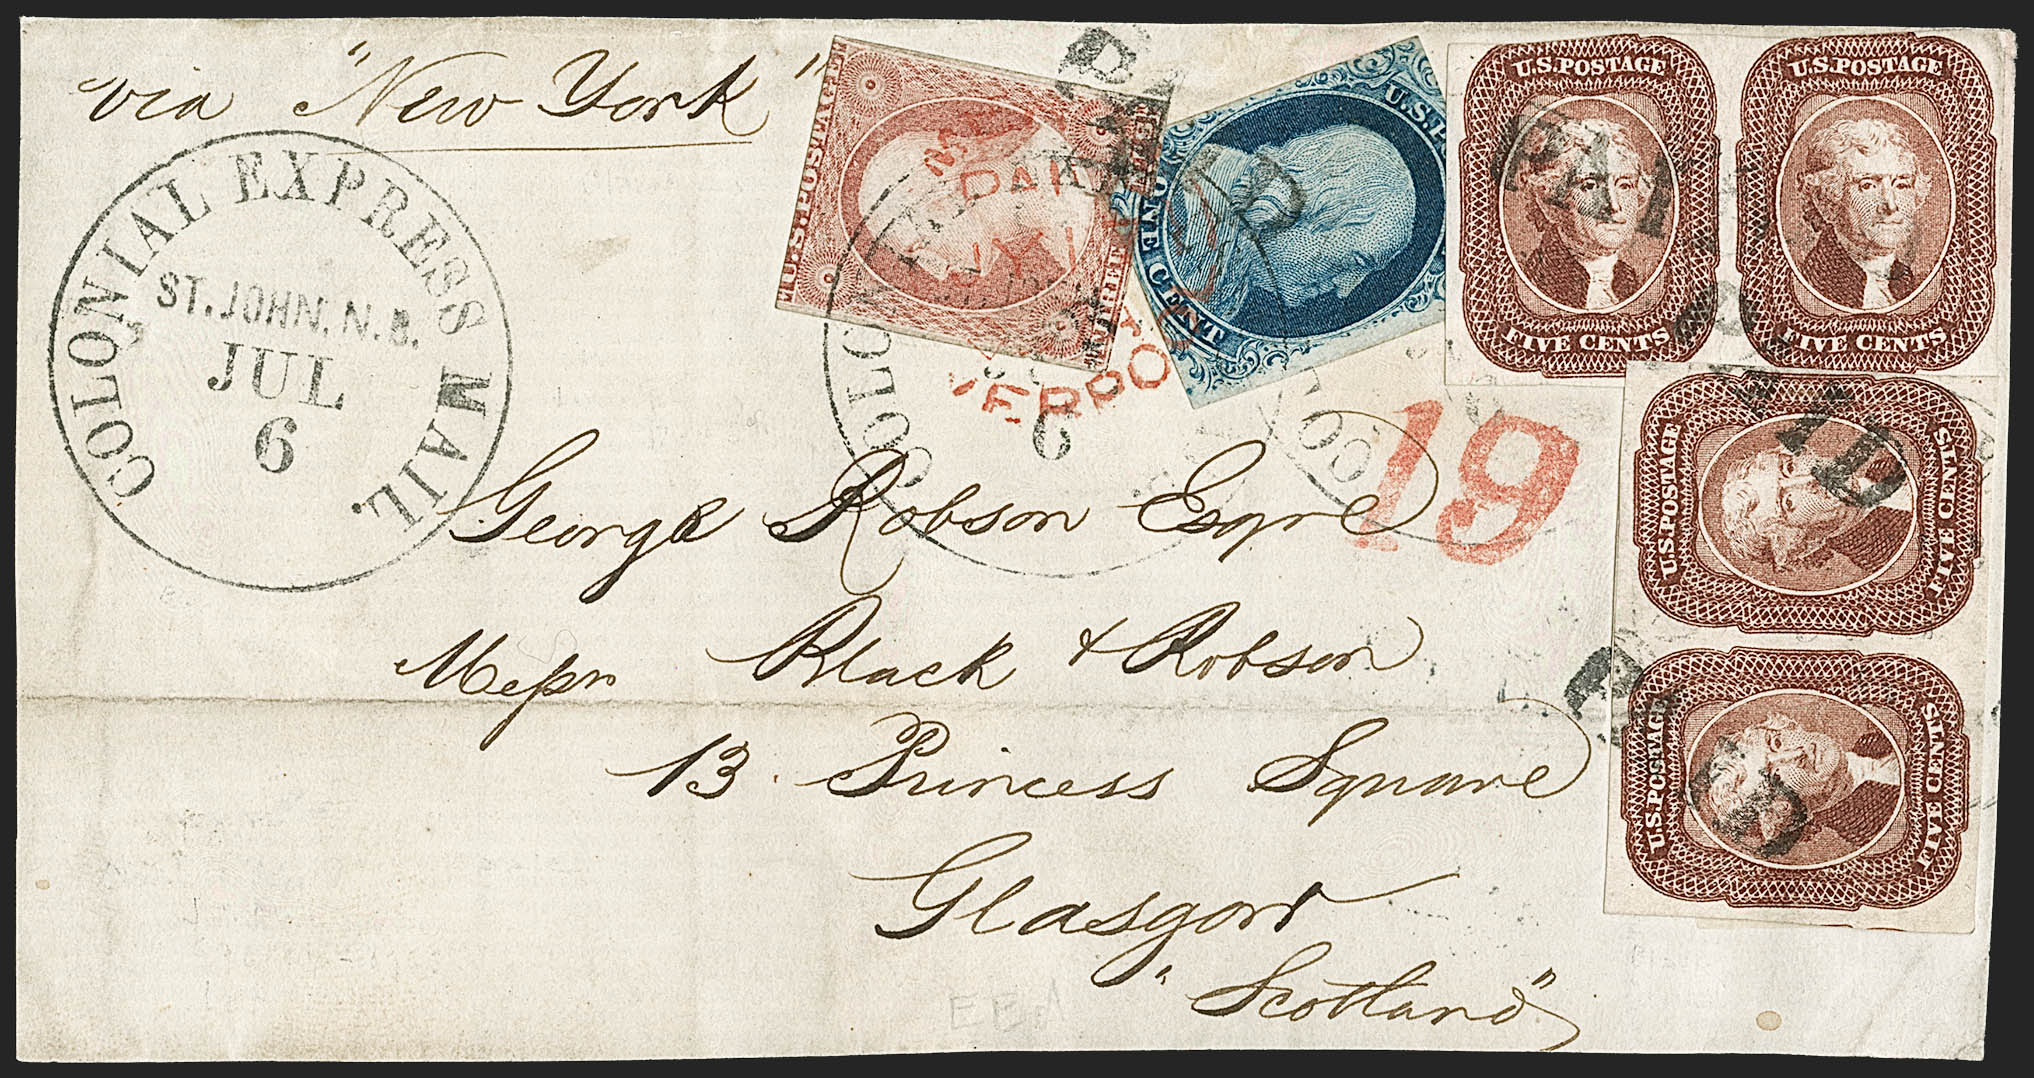 via "New York"
COLONIAL EXPRESS MAIL.
ST. JOHN. N. B.
JUL
6
U.S. POSTAGE
PAID
U.S.P
ONE CENT
PAID
U.S. POSTAGE
FIVE CENTS
U.S. POSTAGE
FIVE CENTS
PAID
COLON
6
19
U.S. POSTAGE
FIVE CENTS
PAID
U.S. POSTAGE
FIVE CENTS
PAID
George Robson Esqre
Messrs Black & Robson
13 Princess Square
Glasgow
"Scotland"
EEA